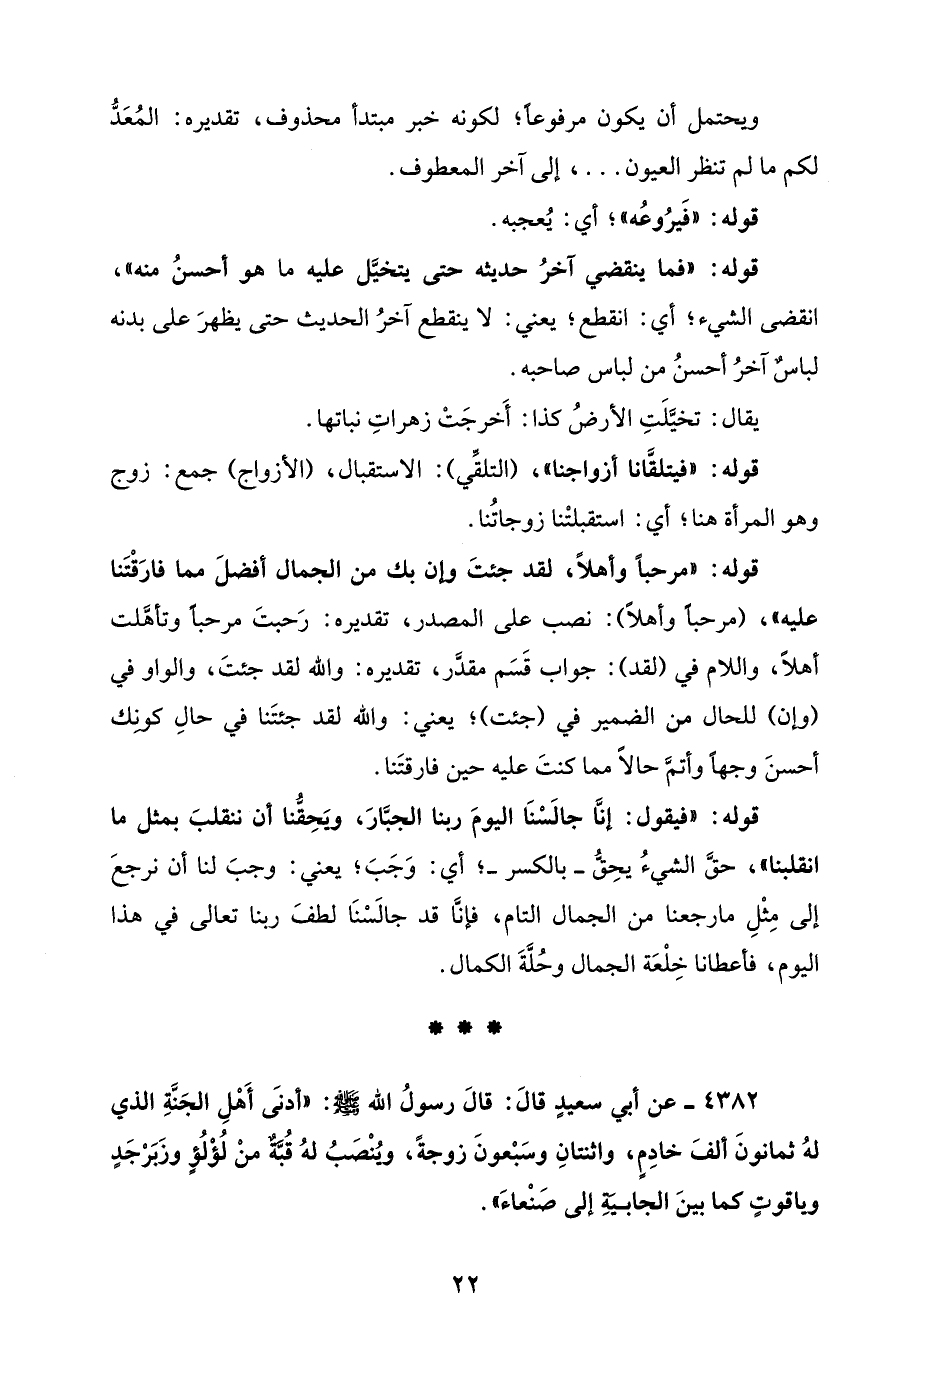 ويحتمل أن يكون مرفوعاً؛ لكونه خبر مبتدأ محذوف، تقديره: المُعَدُّ
لكم ما لم تنظر العيون . . . ، إلى آخر المعطوف.
قوله: «فَيرُوعُه»؛ أي: يُعجبه.
قوله: «فما ينقضي آخرُ حديثه حتى يتخيَّل عليه ما هو أحسنُ منه»،
انقضى الشيء؛ أي: انقطع؛ يعني: لا ينقطع آخرُ الحديث حتى يظهرَ على بدنه
لباسٌ آخرُ أحسنُ من لباس صاحبه.
يقال: تخيَّلَتِ الأرضُ كذا: أَخرجَتْ زهراتِ نباتها.
قوله: «فيتلقَّانا أزواجنا»، (التلقِّي): الاستقبال، (الأزواج) جمع: زوج
وهو المرأة هنا؛ أي: استقبلتْنا زوجاتُنا.
قوله: «مرحباً وأهلاً، لقد جئتَ وإن بك من الجمال أفضلَ مما فارَقْتَنا
عليه»، (مرحباً وأهلاً): نصب على المصدر، تقديره: رَحبتَ مرحباً وتأهَّلت
أهلاً، واللام في (لقد): جواب قَسَم مقدَّر، تقديره: والله لقد جئتَ، والواو في
(وإن) للحال من الضمير في (جئت)؛ يعني: والله لقد جئتَنا في حالِ كونِك
أحسنَ وجهاً وأتمَّ حالاً مما كنتَ عليه حين فارقتَنا.
قوله: «فيقول: إنَّا جالَسْنَا اليومَ ربنا الجبَّارَ، ويَحِقُّنا أن ننقلبَ بمثل ما
انقلبنا»، حقَّ الشيءُ يحِقُّ ـ بالكسر ـ؛ أي: وَجَبَ؛ يعني: وجبَ لنا أن نرجعَ
إلى مِثْلِ مارجعنا من الجمال التام، فإنَّا قد جالَسْنَا لطفَ ربنا تعالى في هذا
اليوم، فأعطانا خِلْعَة الجمال وحُلَّةَ الكمال.
* * *
٤٣٨٢ ـ عن أبي سعيدٍ قالَ: قالَ رسولُ الله ﷺ: «أدنَى أَهْلِ الجَنَّةِ الذي
لهُ ثمانونَ ألفَ خادِمٍ، واثنتانِ وسَبْعونَ زوجةً، ويُنْصَبُ لهُ قُبَّةٌ منْ لُؤْلُؤٍ وزَبَرْجَدٍ
وياقوتٍ كما بينَ الجابيَةِ إلى صَنْعاءَ».
٢٢